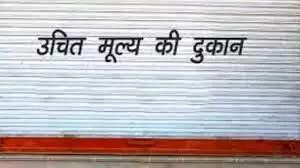 उचित मूल्य की दुकान